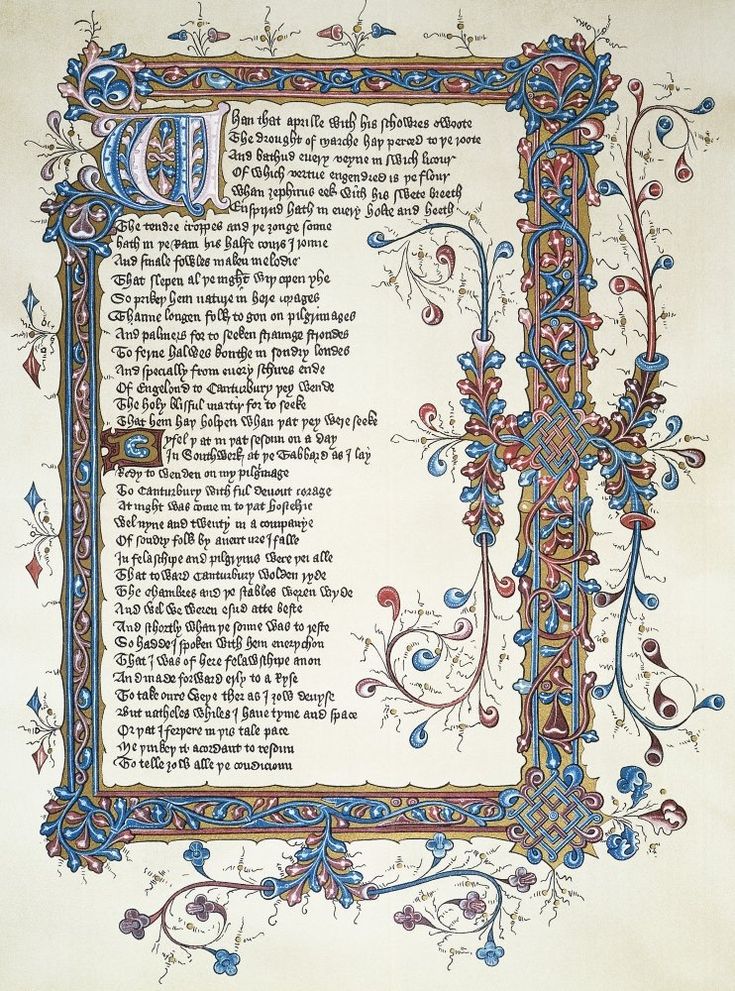 Whan that aprille with his schowres swoote
The drought of marche hay perced to ye roote
And bathud every veyne in swich licour
Of which vertue engendred is ye flour
Whan zephirus eek with his swete breeth
Enspirud hath in every holte and heeth
The tendre croppes and ye zonge sonne
hath in ye Ram his halfe cours j ronne
And smale fowles maken melodie
That slepen al ye night wiy open yhe
So prikey hem nature in here corages
Thanne longen folk to gon on pilgrimages
And palmers for to seeken straunge strondes
To ferne halwes kouthe in sondry londes
And specially from every schires ende
Of Engelond to Canturbury yey wende
The holy blisful martir for to seeke
That hem hay holpen whan yat yey were seeke
Byfel yat in yat sesoun on a day
In Southwerk at ye Tabbard as I lay
Redy to wenden on my pilgrimage
To Canturbury with ful devout corage
At night was come in to yat hostelrie
Wel nyne and twenty in a companye
Of sondry folk by aventure i falle
In felaschipe and pilgryms were yei alle
That toward Canturbury wolden ryde
The chambres and ye stables weren wyde
And wel we weren esud atte beste
And schortly whan ye sonne was to reste
So hadde j spoken with hem everychon
That j was of here felawschipe anon
And made forward erly to a ryse
To take oure weye ther as j zow devyse
But natheles whiles j have tyme and space
Or yat j feryere in yis tale pace
Me yinkey it acordaunt to resoun
To telle zow alle ye condicioun